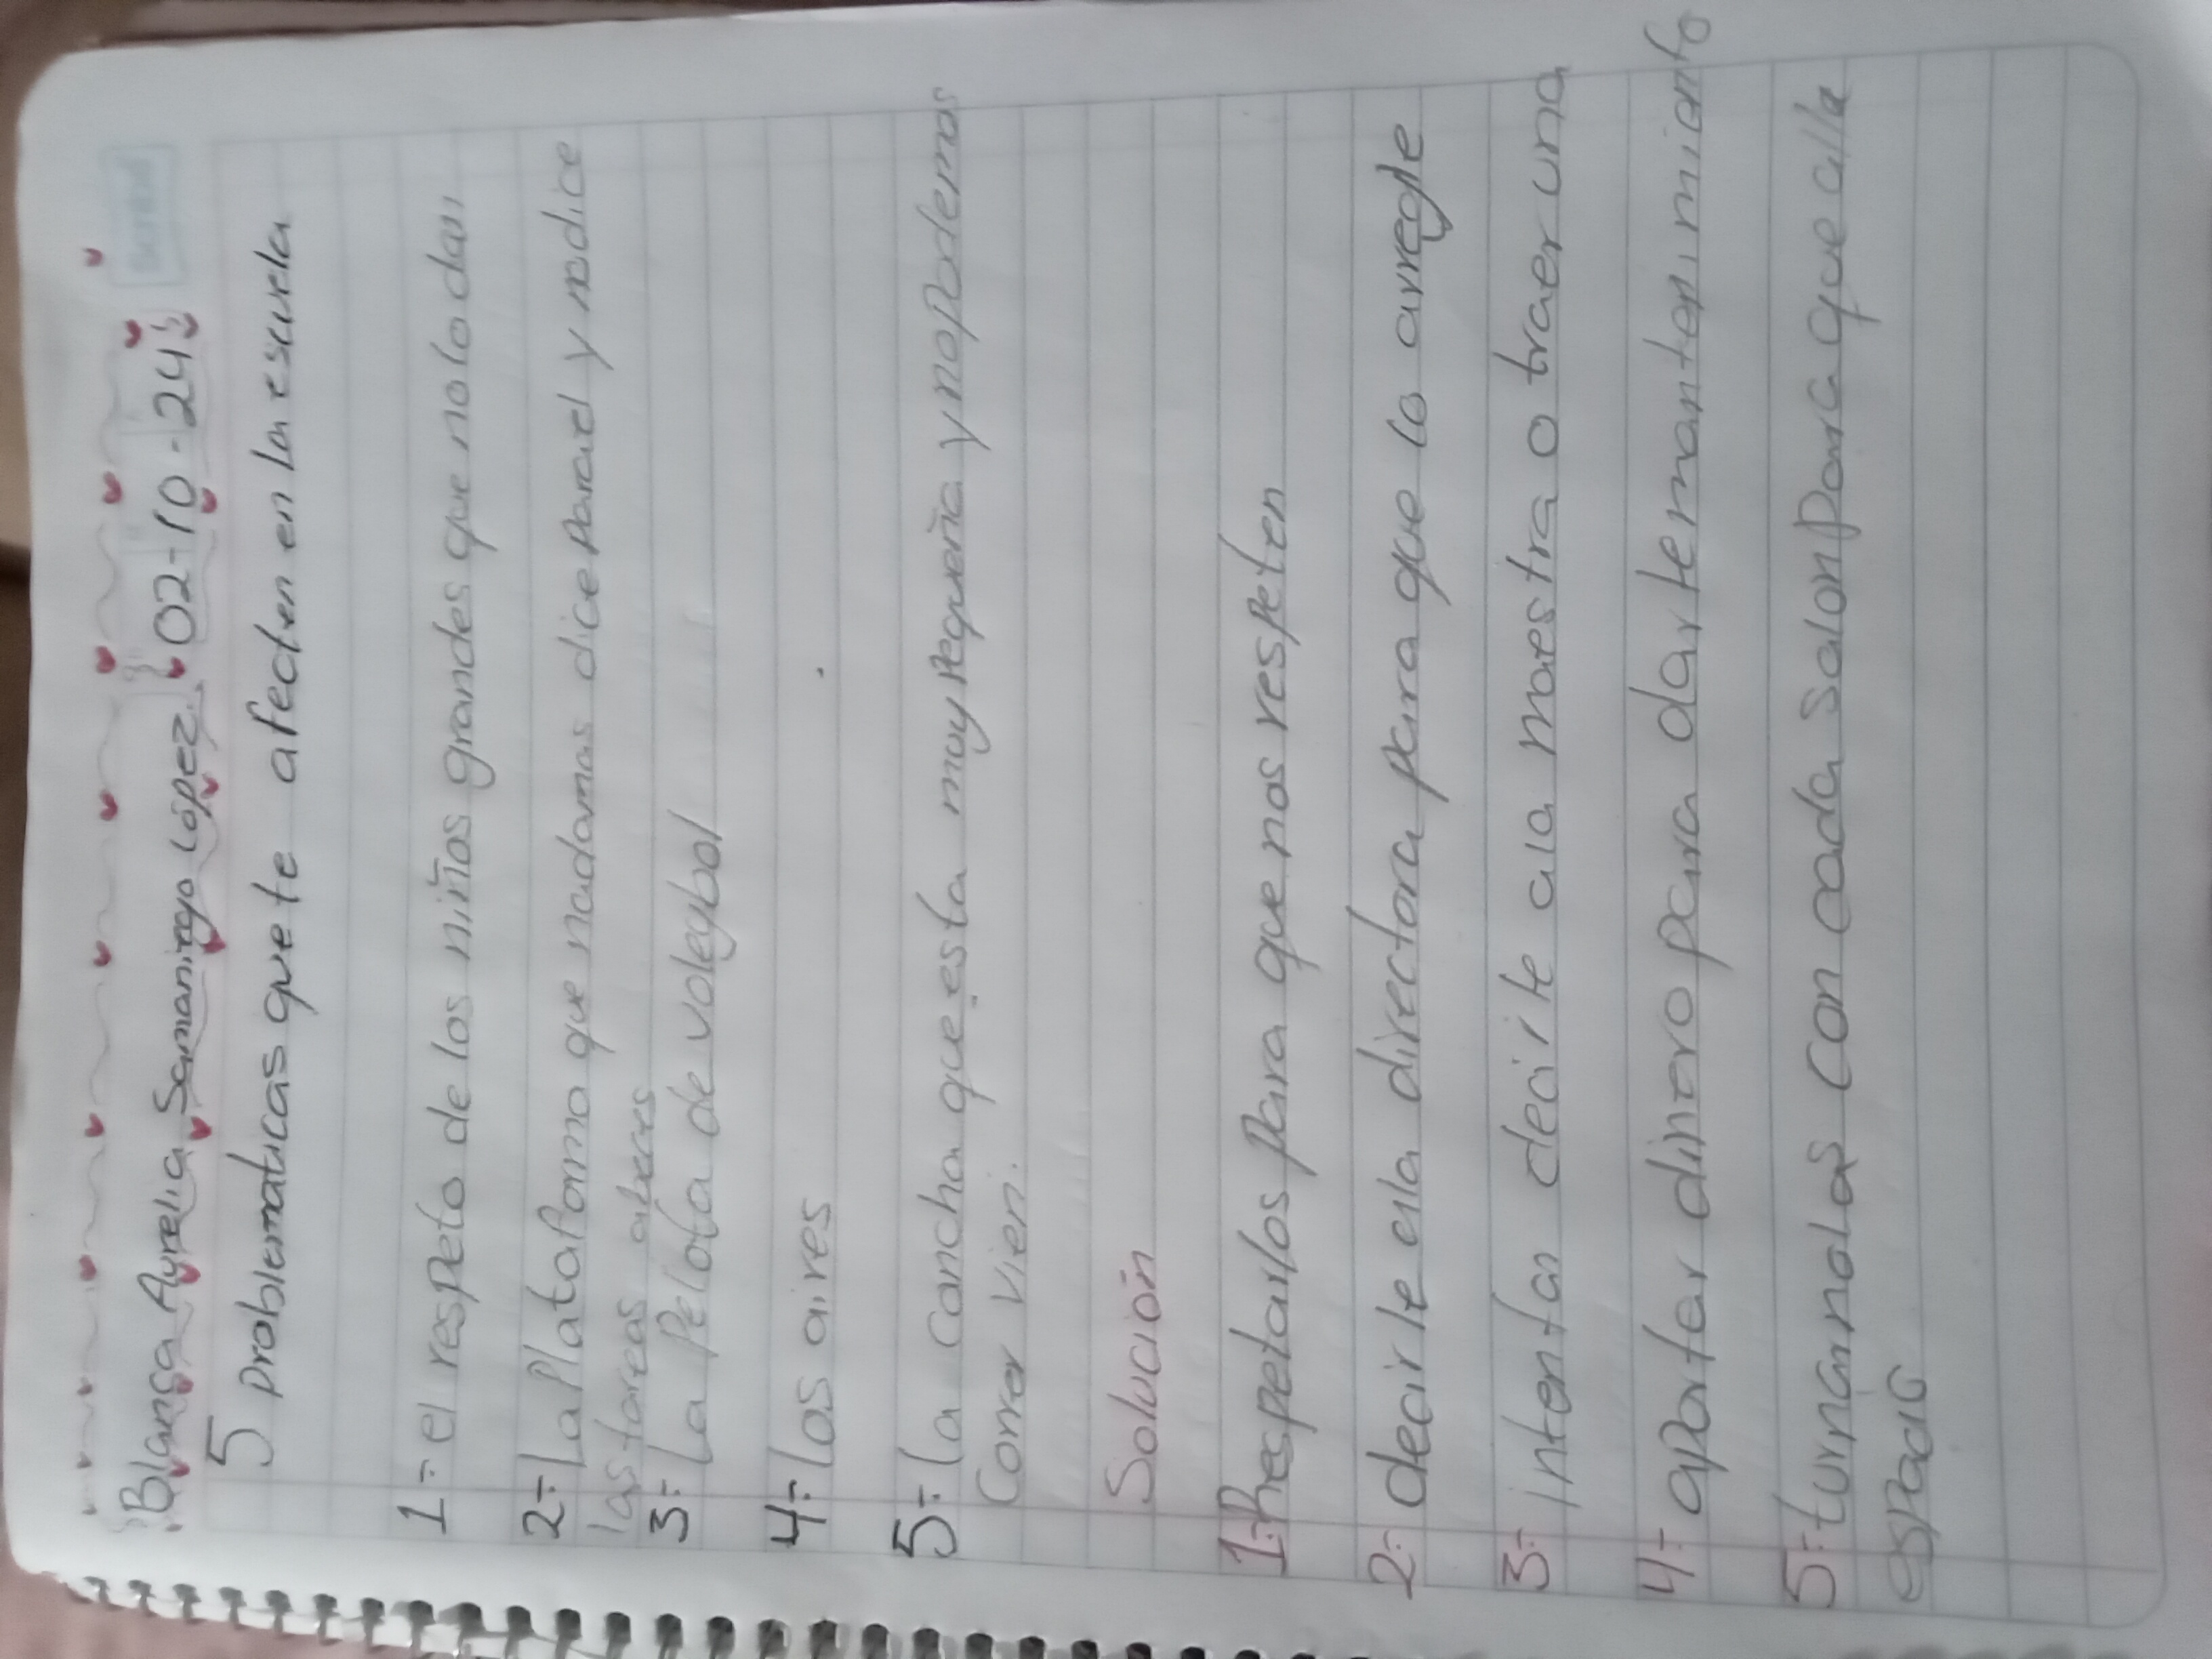 Blanca Aurelia Samaniego López 02-10-24
5 problematicas que te afecten en la escuela
1= el respeto de los niños grandes que no lo dan
2= La Plataforma que nadamas dice Parael y nodice
las tareas aberes
3= La Pelota de voleybol
4= los aires
5= la cancha que esta muy Pequeña y nopodemos
Correr vien.
Solución
1= Respetarlos para que nos respeten
2= decirle ala directora para que lo arregle
3= intentar decirle ala maestra o traer una
4= aportar dinero para darle mantenimiento
5= turnándolas con cada salon Para que alla
espacio